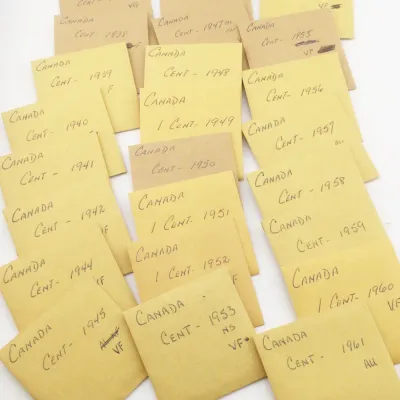 VG
CANADA
CENT - 1938
CANADA
CENT - 1939
F
CANADA
CENT - 1940
CANADA
CENT - 1941
CANADA
CENT - 1942
VF
CANADA
CENT - 1944
VF
CANADA
CENT - 1945
VF
CANADA
CENT - 1947
CANADA
CENT - 1948
CANADA
1 CENT - 1949
CANADA
CENT - 1950
CANADA
1 CENT - 1951
CANADA
1 CENT - 1952
VF
CANADA
CENT - 1953
NS
VF
VF
CANADA
CENT - 1955
VF
CANADA
CENT - 1956
CANADA
CENT - 1957
AU
CANADA
CENT - 1958
CANADA
CENT - 1959
CANADA
1 CENT - 1960
VF
CANADA
CENT - 1961
AU